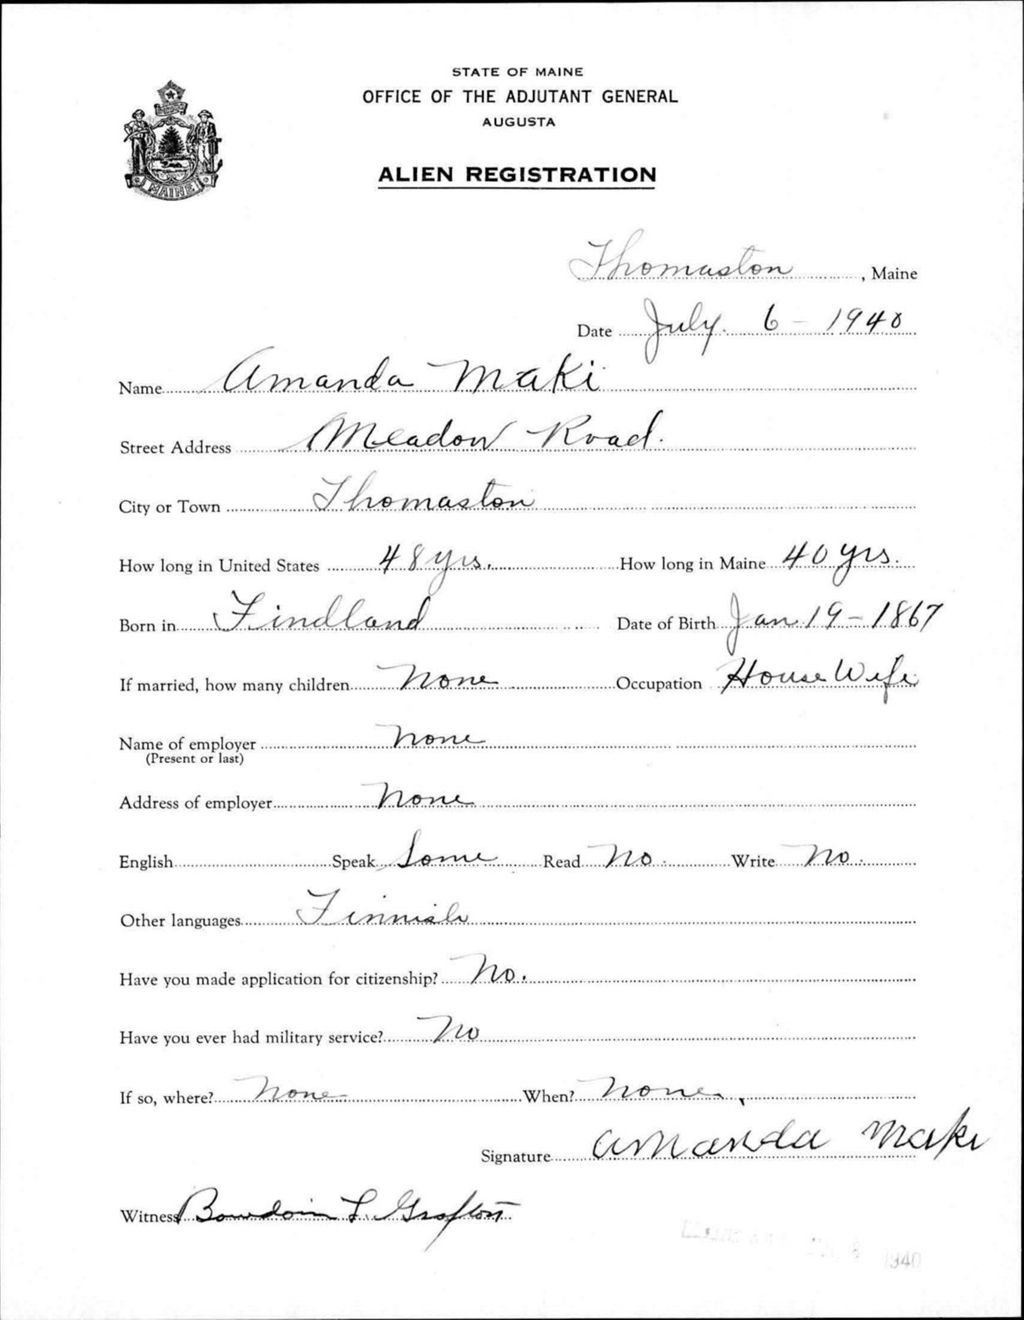 STATE OF MAINE
OFFICE OF THE ADJUTANT GENERAL
AUGUSTA
ALIEN REGISTRATION
MAINE
Thomaston, Maine
Date July 6 - 1940
Name Amanda Maki
Street Address Meadow Road.
City or Town Thomaston
How long in United States 48 yrs. How long in Maine 40 yrs.
Born in Findland Date of Birth Jan 19 - 1867
If married, how many children None Occupation House Wife
Name of employer None
(Present or last)
Address of employer None
English Speak Some Read No. Write No.
Other languages Finnish
Have you made application for citizenship? No.
Have you ever had military service? No
If so, where? None When? None
Signature Amanda Maki
Witness Bowdoin L. Grafton
1940